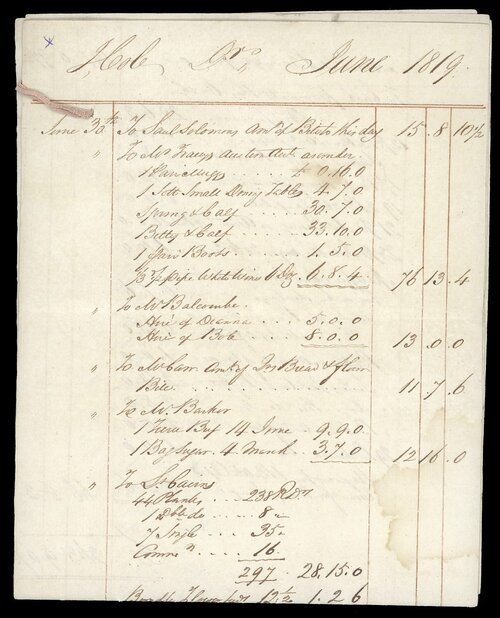 J. Cole Drs June 1819
June 30th To Saul Solomons Amt of Bill to this day 15. 8. 10½
" To Mr Traceys Auction Acct as under
1 Pair Muggs £ 0. 16. 0
1 Sett Small Dining Tables 4. 7. 0
Sprung & Calf 30. 7. 0
Betty & Calf 33. 10. 0
1 Pair Boots 1. 5. 0
Pipe White Wine 6. 8. 4 76 13. 4
" To Mr Balcombe
Hire of Deanna 5. 0. 0
Hire of Bob 8. 0. 0 13. 0. 0
" To Mr Carr Amt of Bread & flour
Bill 11. 7. 6
" To Mr Barker
1 Tierce Beef 14 June 9. 9. 0
1 Bag Sugar 4 March 3. 7. 0 12 16. 0
" To St Cairns
44 Planks 238 RDs
1 Dble do 8 "
7 Single 35 "
Comn 16
297 28. 15. 0
12½ 1. 2 6